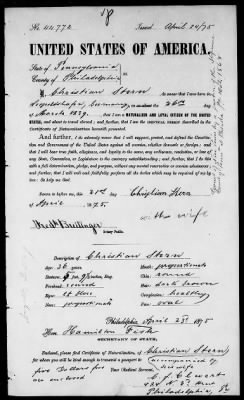 No 44772 Issued April 24/75
UNITED STATES OF AMERICA.
State of Pennsylvania
County of Philadelphia
I, Christian Stern
Germany, on or about the 26th day
of March 1839, that I am a NATURALIZED AND LOYAL CITIZEN OF THE UNITED
STATES, and about to travel abroad; and further, that I am the IDENTICAL PERSON described in the
Certificate of Naturalization herewith presented.
And further, I do solemnly swear that I will support, protect, and defend the Constitution
and Government of the United States against all enemies, whether domestic or foreign; and
that I will bear true faith, allegiance, and loyalty to the same, any ordinance, resolution, or law of
any State, Convention, or Legislature to the contrary notwithstanding; and further, that I do this
with a full determination, pledge, and purpose, without any mental reservation or evasion whatsoever;
and further, that I will well and faithfully perform all the duties which may be required of me by law.
Sworn to before me, this 21st day Christian Stern
of April 1875.
with wife
Notary Public.
Description of Christian Stern
Age: 36 years Mouth: proportionate
Stature: Chin: round
Forehead: round Hair: dark brown
Eyes: Complexion: healthy
Nose: proportionate Face: oval
Philadelphia, April 23d 1875
Hon. Hamilton Fish
SECRETARY OF STATE.
Enclosed, please find Certificate of Naturalization of Christian Stern
for whom you will be kind enough to transmit a passport to accompanied by
his wife
Five Dollars fee Your Obedient Servant,
are enclosed
Philadelphia, Pa